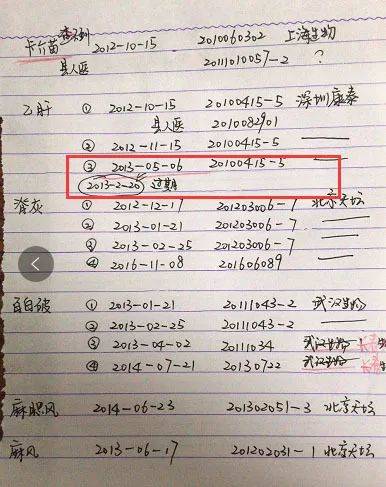 卡介苗 2012-10-15 2010060302 上海生物
县人医 2011010057-2 ?
乙肝 ① 2012-10-15 20100415-5 深圳康泰
县人医 2010082901
② 2012-11-15 20100415-5 ——
③ 2013-05-06 20100415-5 ——
2013-2-20 过期
脊灰 ① 2012-12-17 201203006-7 北京天坛
② 2013-01-21 201203006-7 ——
③ 2013-02-25 201203006-7 ——
④ 2016-11-08 201606089 ——
百白破 ① 2013-01-21 20111043-2 武汉生物
② 2013-02-25 20111043-2 ——
③ 2013-04-02 20111034 武汉生物
④ 2014-07-21 20130722 武汉生物
麻腮风 2014-06-23 201302051-3 北京天坛
麻风 2013-06-17 201202031-1 北京天坛